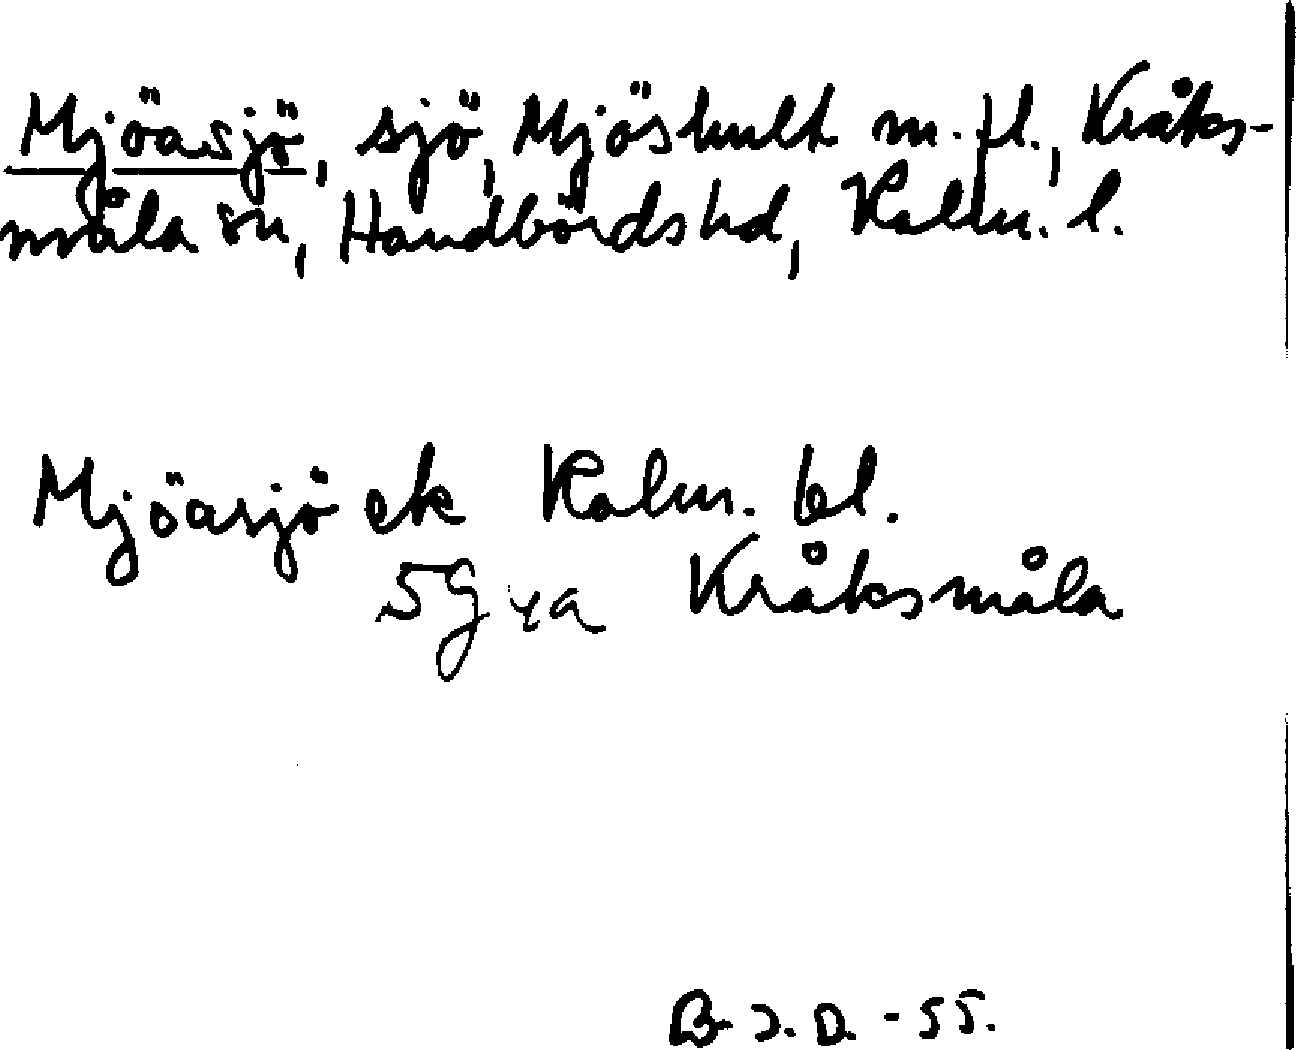 Mjöasjö, sjö, Mjöshult m. fl., Kråks-
måla sn, Handbörds hd, Kalm. l.
Mjöasjö ek Kalm. bl.
5G ya Kråksmåla
B. J. D. -55.